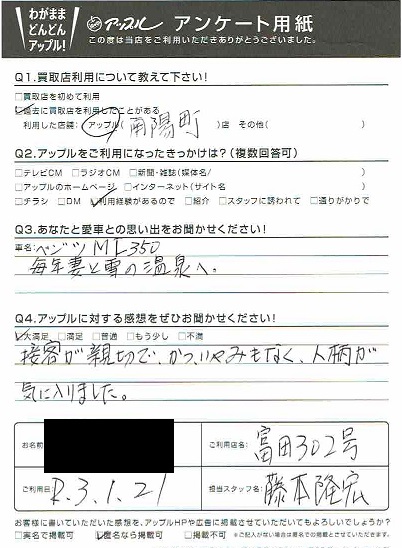 わがまま
どんどん
アップル!
アップル アンケート用紙
この度は当店をご利用いただきありがとうございました。
Q1.買取店利用について教えて下さい!
□買取店を初めて利用
☑過去に買取店を利用したことがある
利用した店舗: アップル(南陽町)店 その他( )
Q2.アップルをご利用になったきっかけは?(複数回答可)
□テレビCM □ラジオCM □新聞・雑誌(媒体名/ )
□アップルのホームページ □インターネット(サイト名 )
□チラシ □DM ☑利用経験があるので □紹介 □スタッフに誘われて □通りがかりで
Q3.あなたと愛車との思い出をお聞かせください!
車名:ベンツML350
毎年妻と雪の温泉へ。
Q4.アップルに対する感想をぜひお聞かせください!
☑大満足 □満足 □普通 □もう少し □不満
接客が親切で、かつ、いやみもなく、人柄が
気に入りました。
お名前
ご利用店名: 富田302号
ご利用日 R.3.1.21
担当スタッフ名: 藤本隆宏
お客様に書いていただいた感想を、アップルHPや広告に掲載させていただいてもよろしいでしょうか?
□実名で掲載可 ☑匿名なら掲載可 □掲載不可 ※ご記入がない場合は匿名での掲載とさせていただきます。